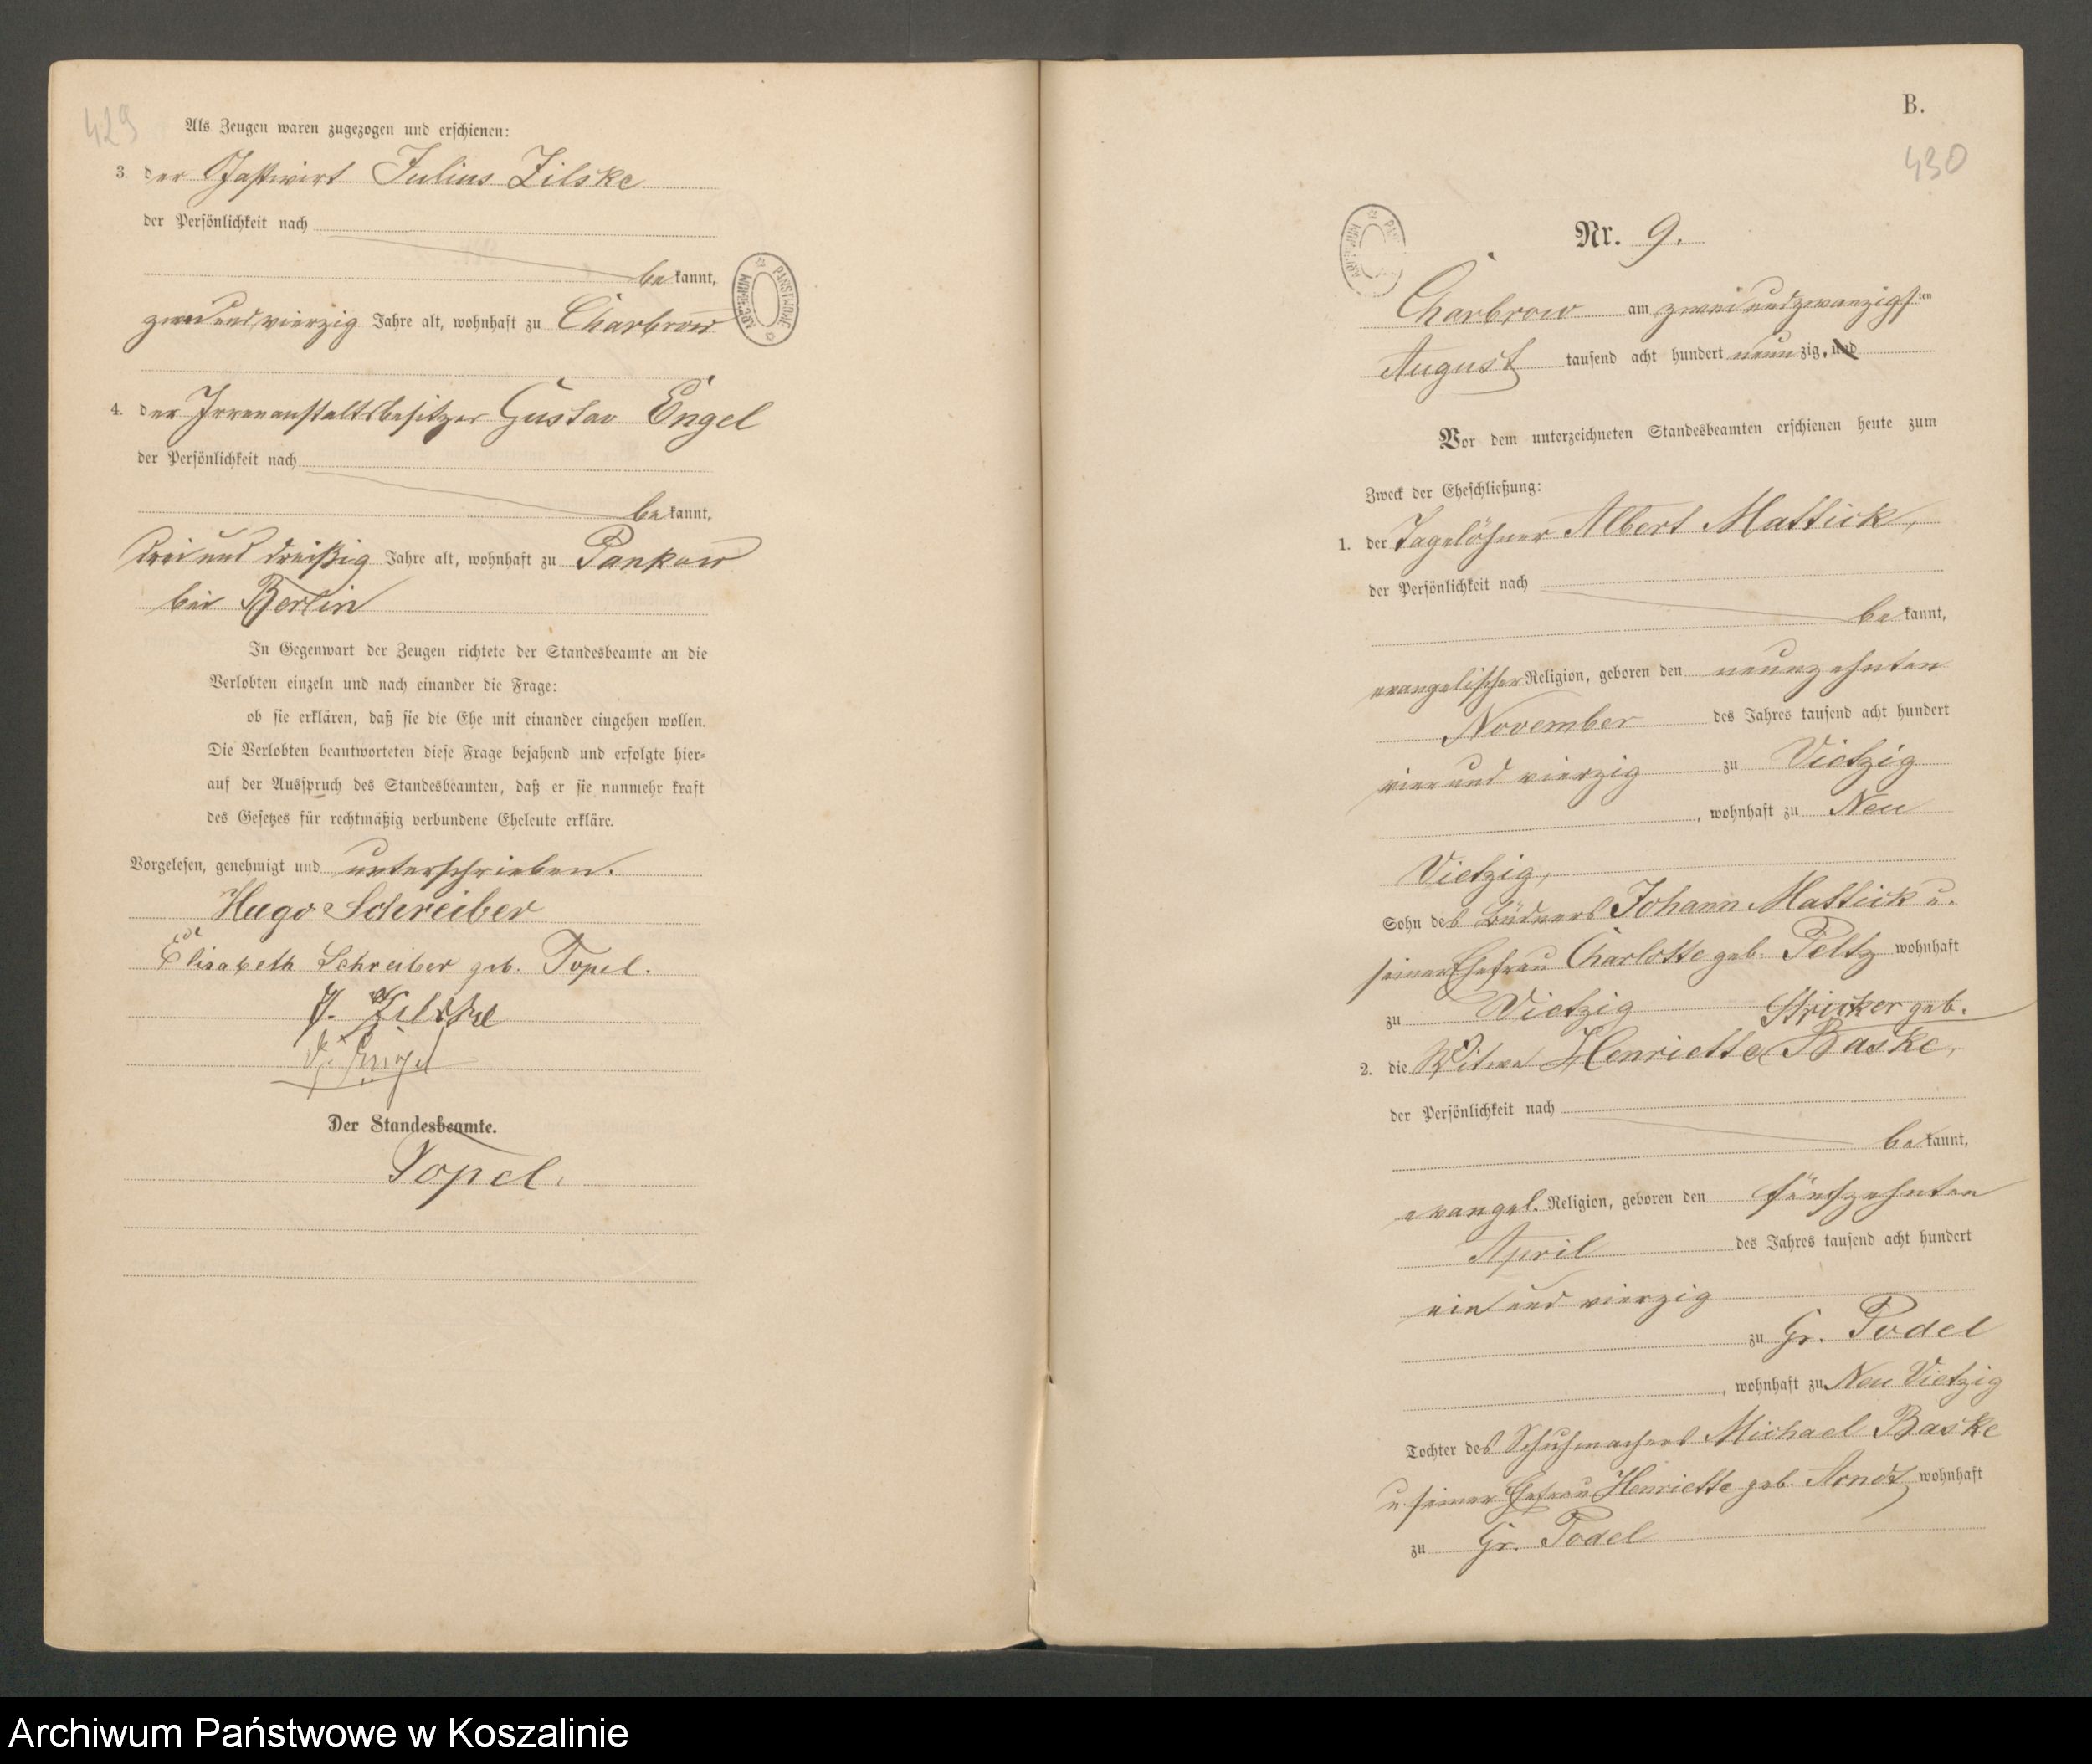 429
Als Zeugen waren zugezogen und erschienen:
3. der Gastwirt Julius Zilske
der Persönlichkeit nach
bekannt,
zwei und vierzig Jahre alt, wohnhaft zu Charbrow
4. der Irrenanstaltsbesitzer Gustav Engel
der Persönlichkeit nach
bekannt,
drei und dreißig Jahre alt, wohnhaft zu Pankow
bei Berlin
In Gegenwart der Zeugen richtete der Standesbeamte an die
Verlobten einzeln und nach einander die Frage:
ob sie erklären, daß sie die Ehe mit einander eingehen wollen.
Die Verlobten beantworteten diese Frage bejahend und erfolgte hier-
auf der Ausspruch des Standesbeamten, daß er sie nunmehr kraft
des Gesetzes für rechtmäßig verbundene Eheleute erkläre.
Vorgelesen, genehmigt und unterschrieben.
Hugo Schreiber
Elisabeth Schreiber geb. Topel.
J. Zilske
G. Engel
Der Standesbeamte.
Topel.
B.
430
Nr. 9.
Charbrow am zwei und zwanzigsten
August tausend acht hundert neunzig. und
Vor dem unterzeichneten Standesbeamten erschienen heute zum
Zweck der Eheschließung:
1. der Tagelöhner Albert Mattick,
der Persönlichkeit nach
bekannt,
evangelischer Religion, geboren den neunzehnten
November des Jahres tausend acht hundert
vier und vierzig zu Vietzig
, wohnhaft zu Neu
Vietzig,
Sohn des Büdners Johann Mattick u.
seiner Ehefrau Charlotte geb. Peltz wohnhaft
zu Vietzig
Stricker geb.
2. die Witwe Henriette Baske,
der Persönlichkeit nach
bekannt,
evangel. Religion, geboren den fünfzehnten
April des Jahres tausend acht hundert
ein und vierzig
zu Gr. Podel
, wohnhaft zu Neu Vietzig
Tochter des Schuhmachers Michael Baske
u. seiner Ehefrau Henriette geb. Arndt wohnhaft
zu Gr. Podel
Archiwum Państwowe w Koszalinie